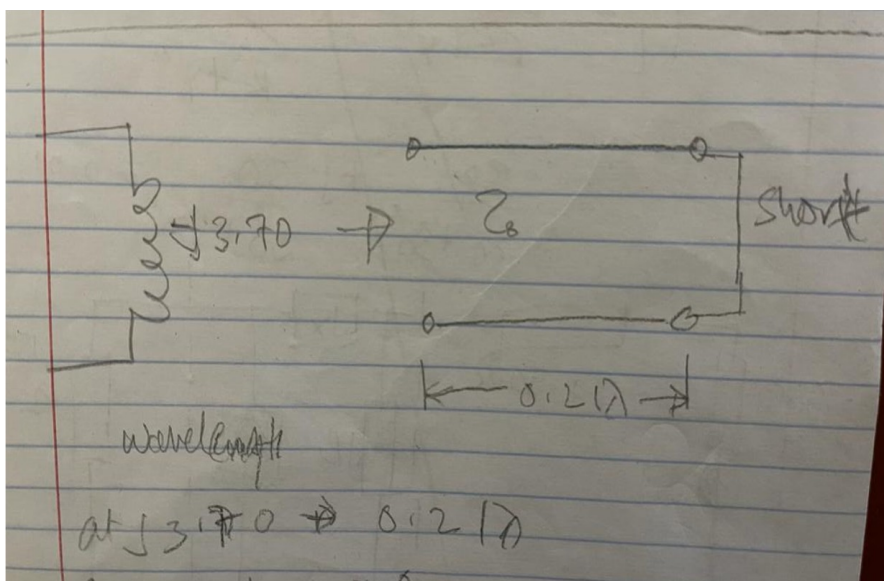 J3.70 → Z₀ Short
0.21λ
wavelength
at J3.70 → 0.21λ